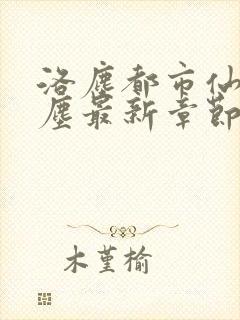 洛塵都市仙
塵最新章節
木堇榆